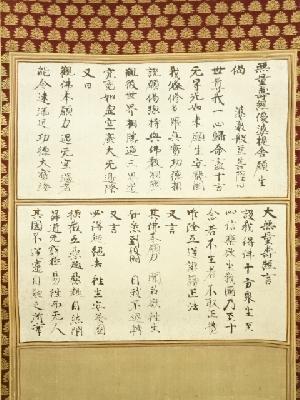 無量壽經優婆提舍願生
偈 婆藪般豆菩薩造曰
世尊我一心歸命盡十方
无㝵光如來願生安樂國
我依修多羅眞實功德相
說願偈揔持與佛敎相應
觀彼世界相勝過三界道
究竟如虛空廣大无邊際
又曰
觀佛本願力遇无空過者
能令速滿足功德大寶海
大無量壽經言
設我得佛十方衆生至
心信樂欲生我國乃至十
念若不生者不取正覺
唯除五逆誹謗正法
又言
其佛本願力 聞名欲往生
皆悉到彼國 自致不退轉
又言
必得超絕去往生安養國
橫截五惡趣惡趣自然閉
昇道无窮極易往而无人
其國不逆違自然之所牽